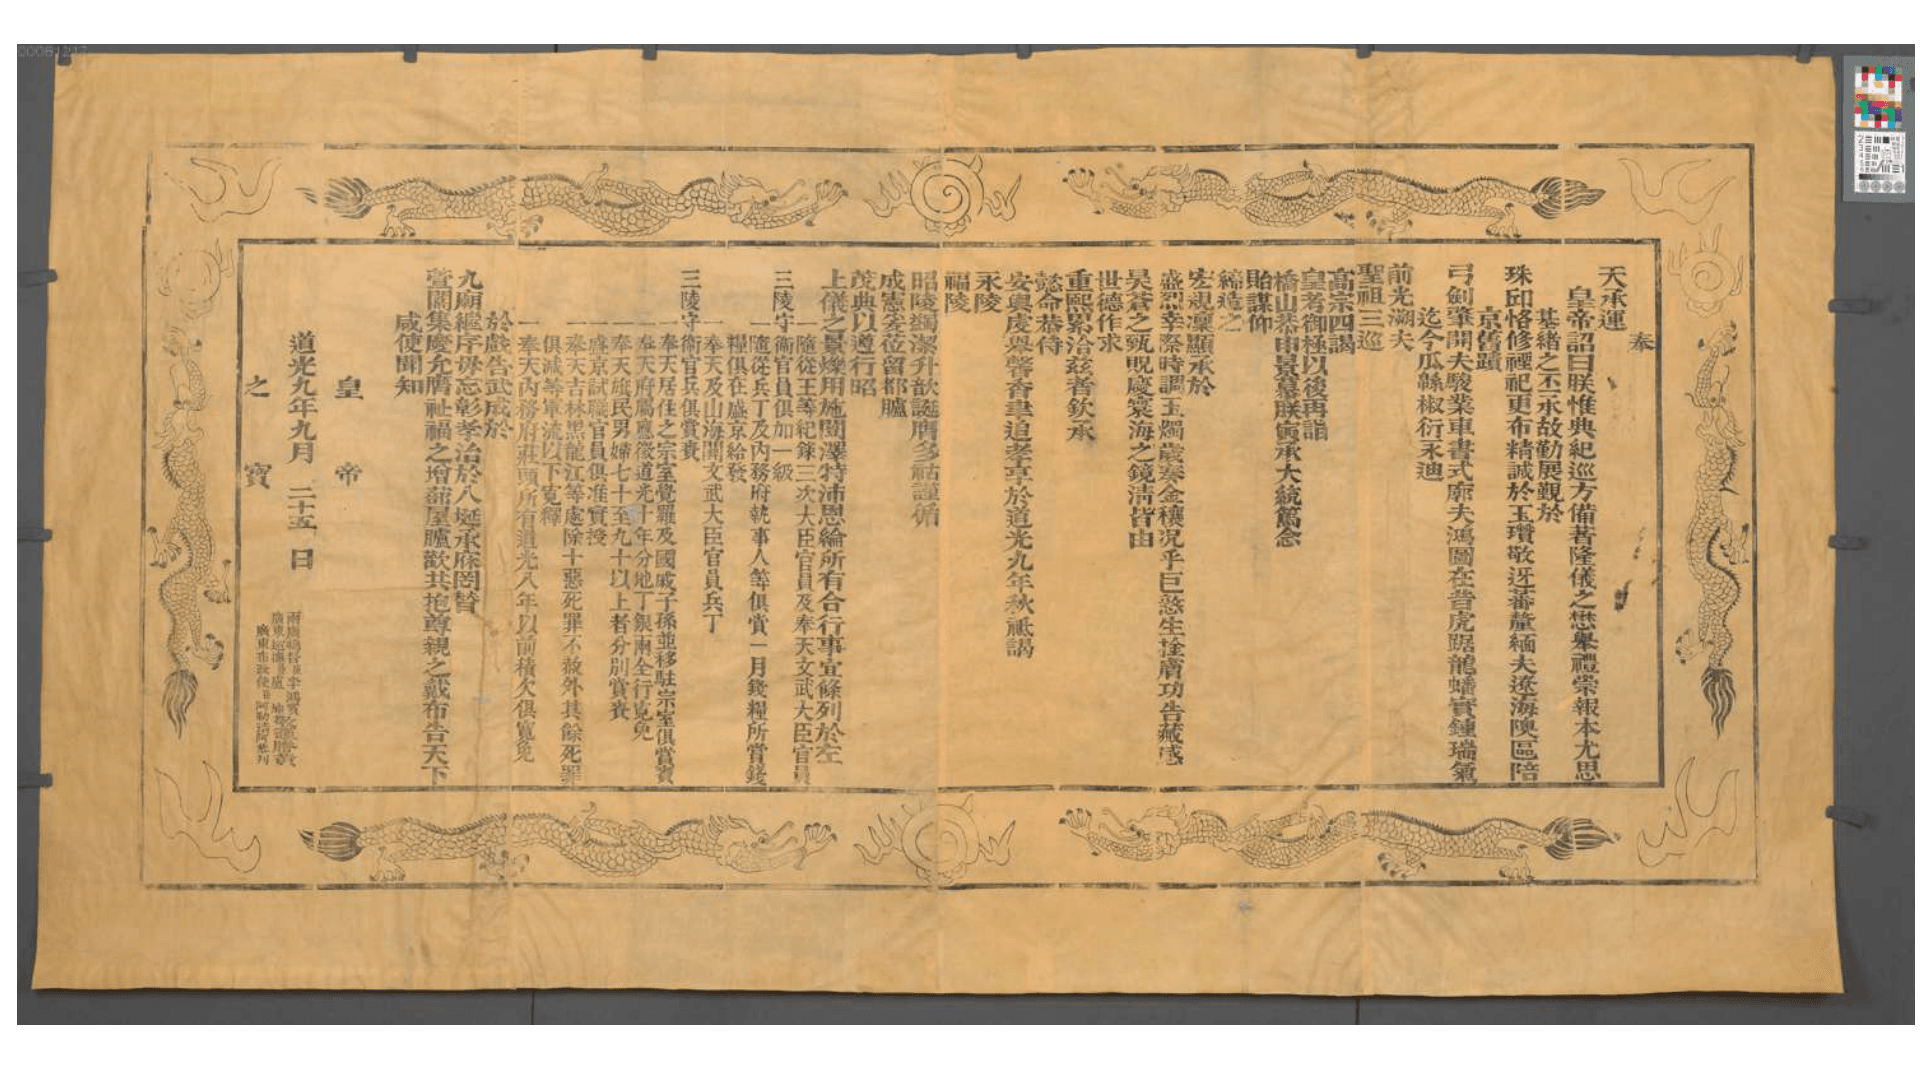 奉
天承運
皇帝詔曰朕惟典紀巡方備著隆儀之懋舉禮崇報本尤思
基緒之丕承故勤展覲於
珠邱恪修禋祀更布精誠於玉瓚敬迓蕃釐緬夫遼海隩區陪
京舊蹟
弓劍肇開夫駿業車書式廓夫鴻圖在昔虎踞龍蟠實鍾瑞氣
迄今瓜緜椒衍永迪
前光溯夫
聖祖三巡
高宗四謁
皇考御極以後再詣
橋山恭申景慕朕寅承大統篤念
貽謀仰
締造之
宏規凜顯承於
盛烈幸際時調玉燭歲奏金穰況乎巨憝生擒膚功告蕆感
昊蒼之甄貺慶寰海之鏡清皆由
世德作求
重熙累洽茲者欽承
懿命恭侍
安輿慶舉馨香聿追孝享於道光九年秋祗謁
永陵
福陵
昭陵蠲潔升歆誕膺多祜謹循
成憲爰莅留都臚
茂典以遵行昭
上儀之景爍用施闓澤特沛恩綸所有合行事宜條列於左
一隨從王等紀錄三次大臣官員及奉天文武大臣官員
三陵守衞官員俱加一級
一隨從兵丁及內務府執事人等俱賞一月錢糧所賞錢
糧俱在盛京給發
一奉天及山海關文武大臣官員兵丁
三陵守衞官兵俱賞賚
一奉天居住之宗室覺羅及國戚子孫並移駐宗室俱賞賚
一奉天府屬應徵道光十年分地丁銀兩全行寬免
一奉天旗民男婦七十至九十以上者分別賞賚
一盛京試職官員俱准實授
一奉天吉林黑龍江等處除十惡死罪不赦外其餘死罪
俱減等軍流以下寬釋
一奉天內務府莊頭所有道光八年以前積欠俱寬免
於戲告武成於
九廟繼序毋忘彰孝治於八埏承庥罔替
萱闈集慶允膺祉福之增蔀屋臚歡共抱尊親之戴布告天下
咸使聞知
皇 帝
道光九年九月 二十五 日
之 寶